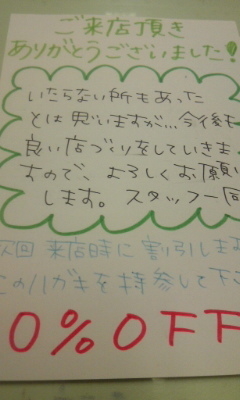 ご来店頂き
ありがとうございました!
いたらない所もあった
とは思いますが…今後も
良い店づくりをしていきま
すので、よろしくお願い
します。スタッフ一同
次回 来店時に割引しま
このハガキを持参して下
0%OFF